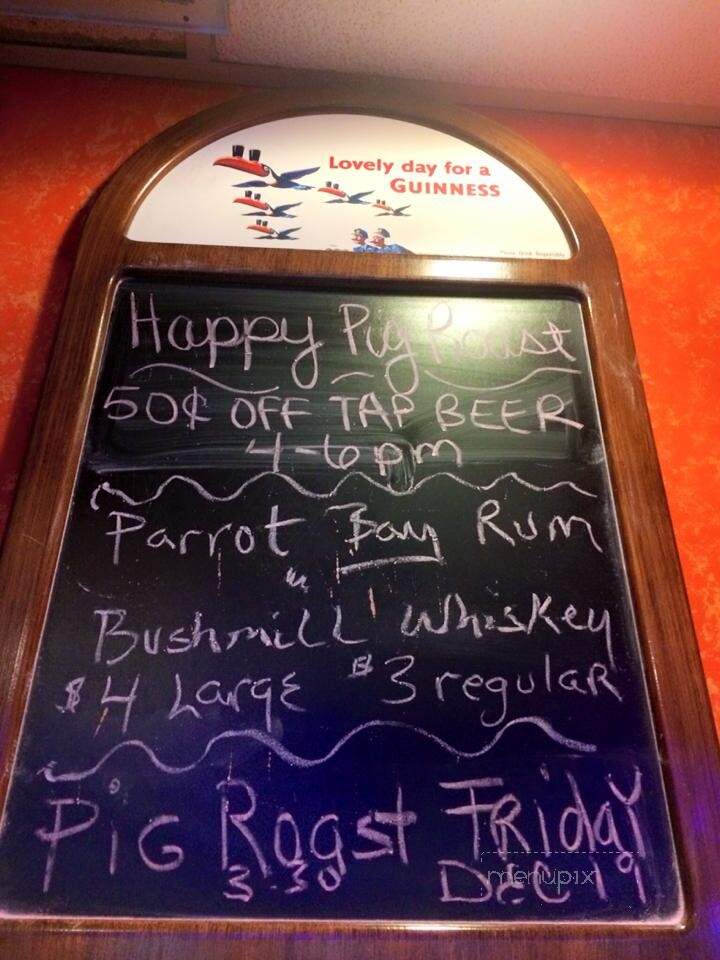 Lovely day for a
GUINNESS
Please Drink Responsibly
Happy Pig Roast
50¢ OFF TAP BEER
4-6pm
Parrot Bay Rum
Bushmill Whiskey
$4 Large $3 regular
Pig Roast Friday
3:30 DEC 19
menupix